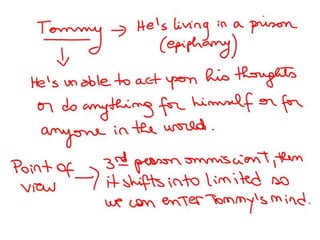 Tommy → He's living in a prison
(epiphany)
He's unable to act upon his thoughts
or do anything for himself or for
anyone in the world.
Point of → 3rd person ommiscient, then
view it shifts into limited so
we can enter Tommy's mind.